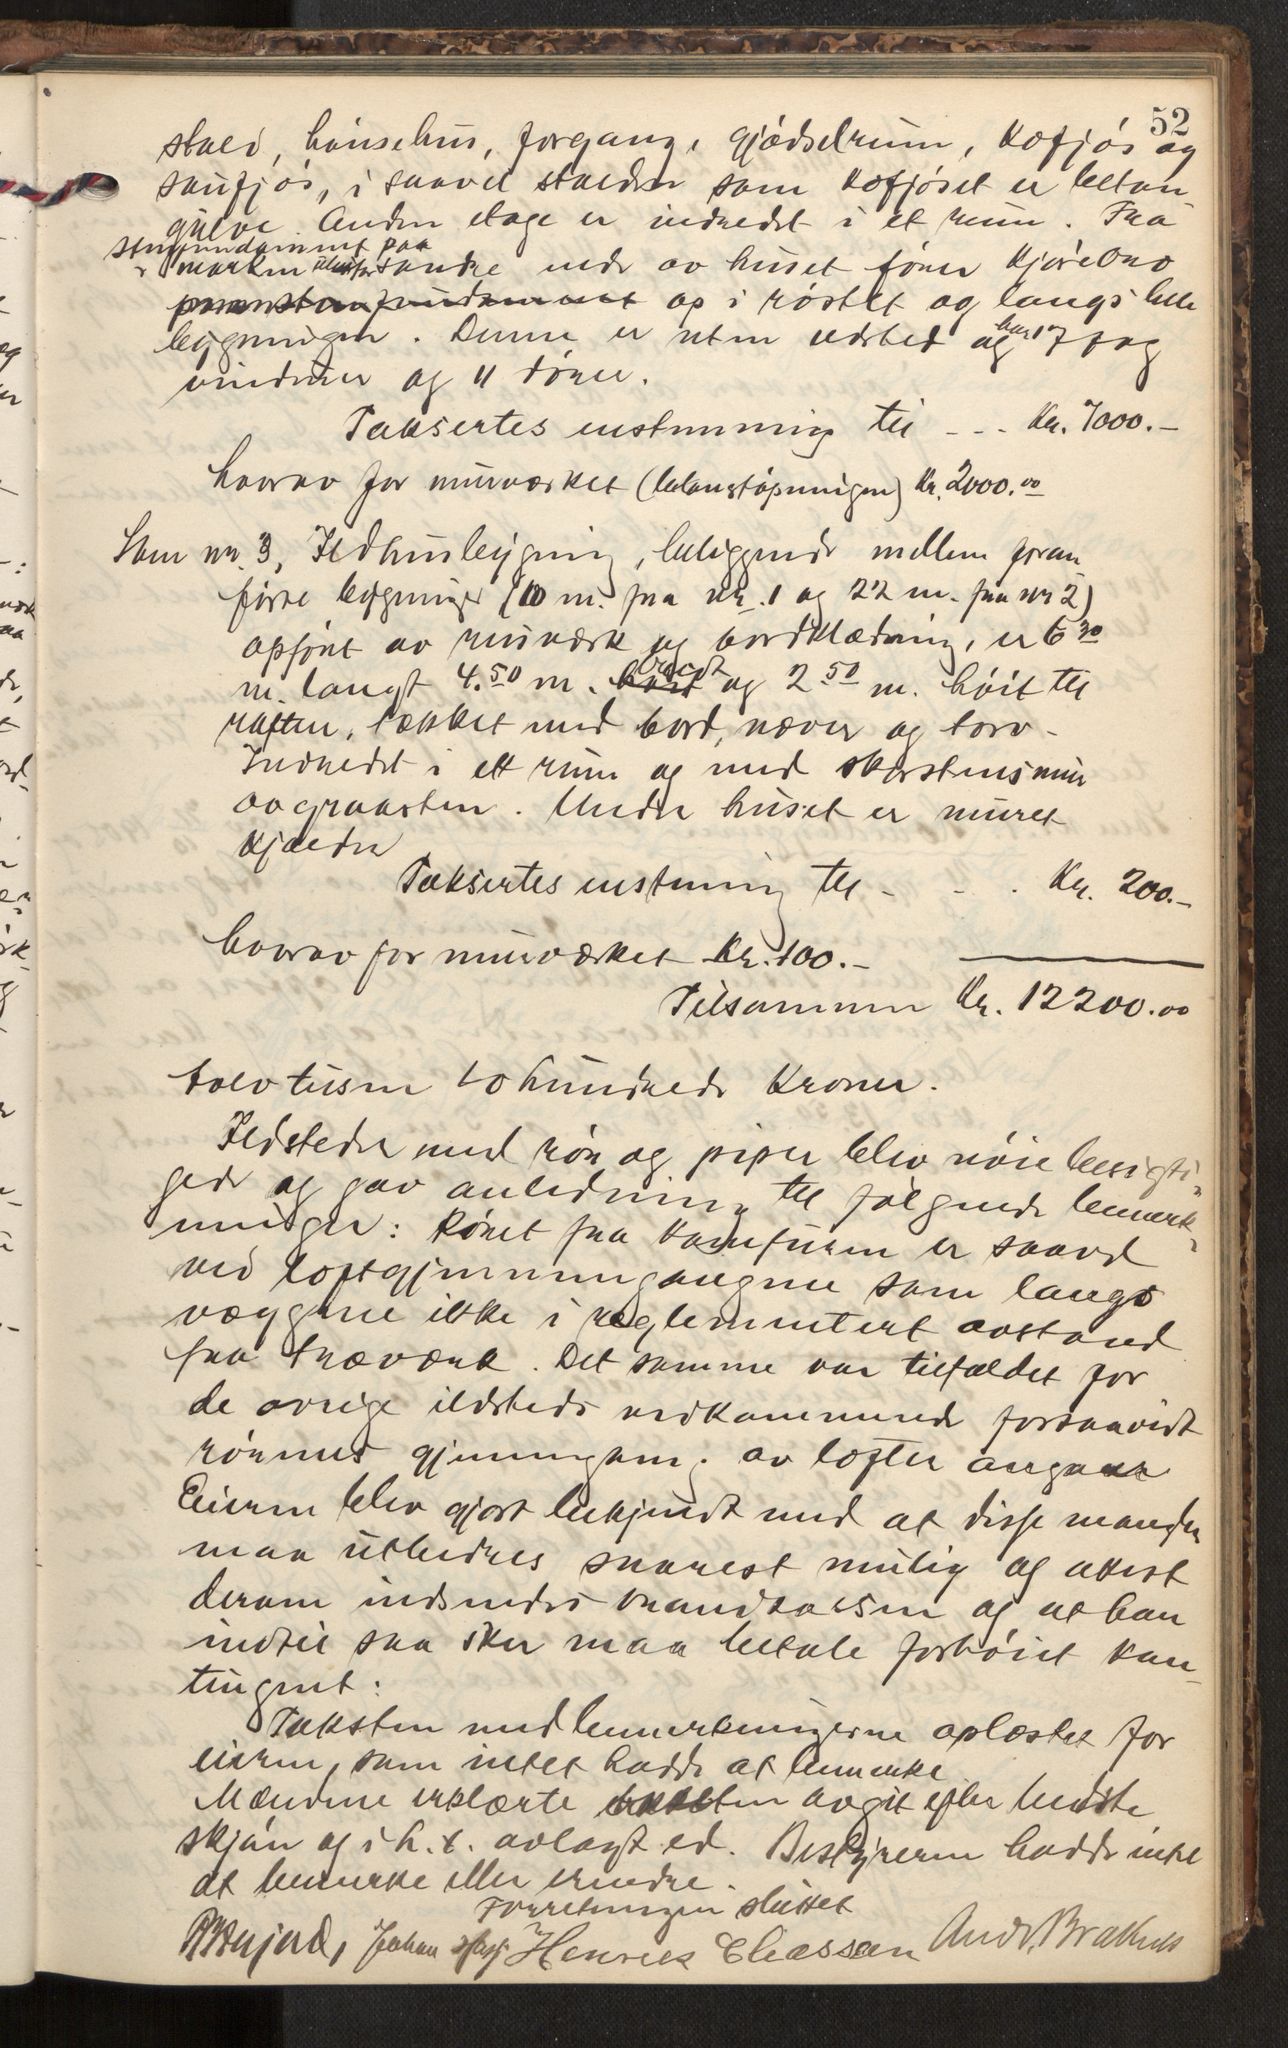 52
stald, hönsehus, forgang, gjödselrum, kofjös og
saufjös, i saavel stalden som kofjöset er beton
gulve. Anden etage er indredet i et rum. Fra
stengrundammet paa
marken utenfor søndre ende av huset förer kjörebro
paa stengrundammet op i röstet og langs hele
bygningen. Denne er uten ildsted og har 17 fag
vinduer og 11 dörer.
Taksertes enstemmig til - - - Kr. 7000.-
hvorav for murværket (betonstöpningen) Kr. 2000.00
Som nr. 3, Ildhusbygning, beliggende mellem foran
förte bygninger (10 m. fra nr. 1 og 22 m. fra nr 2)
opfört av murværk og bordklædning, er 6.30
m. langt 4.50 m. höit bredt og 2.50 m. höit til
raften, tækket med bord, næver og torv -
Indredet i ett rum og med skorstensmur
av graasten. Under huset er muret
kjælder
Taksertes enstemmig til - - . Kr. 200.-
hvorav for murværket Kr. 100.-
Tilsammen Kr. 12200.00
tolv tusen to hundrede kroner.
Ildsteder med rör og piper blev nöie besigti-
gede og gav anledning til fölgende bemerk-
ninger: Röret fra komfuren er saavel
ved loftgjennemgangene som langs
væggene ikke i reglementert avstand
fra træværk. Det samme var tilfældet for
de övrige ildsteds vedkommende forsaavidt
rörenes gjennemgang av lofter angaar
Eieren blev gjort bekjendt med at disse mangler
maa utbedres snarest mulig og attest
derom indsendes brandkassen og at han
indtil saa sker maa betale forhöiet kon-
tingent:
Taksten med bemerkningerne oplæstes for
eieren, som intet hadde at bemerke.
Mændene erklærte taksten avgit efter bedste
skjön og i h. t. avlagt ed. Bestyreren hadde intet
at bemerke eller erindre.
Forretningen sluttet
Johan Henrik Eliassen Andr. Brakvat